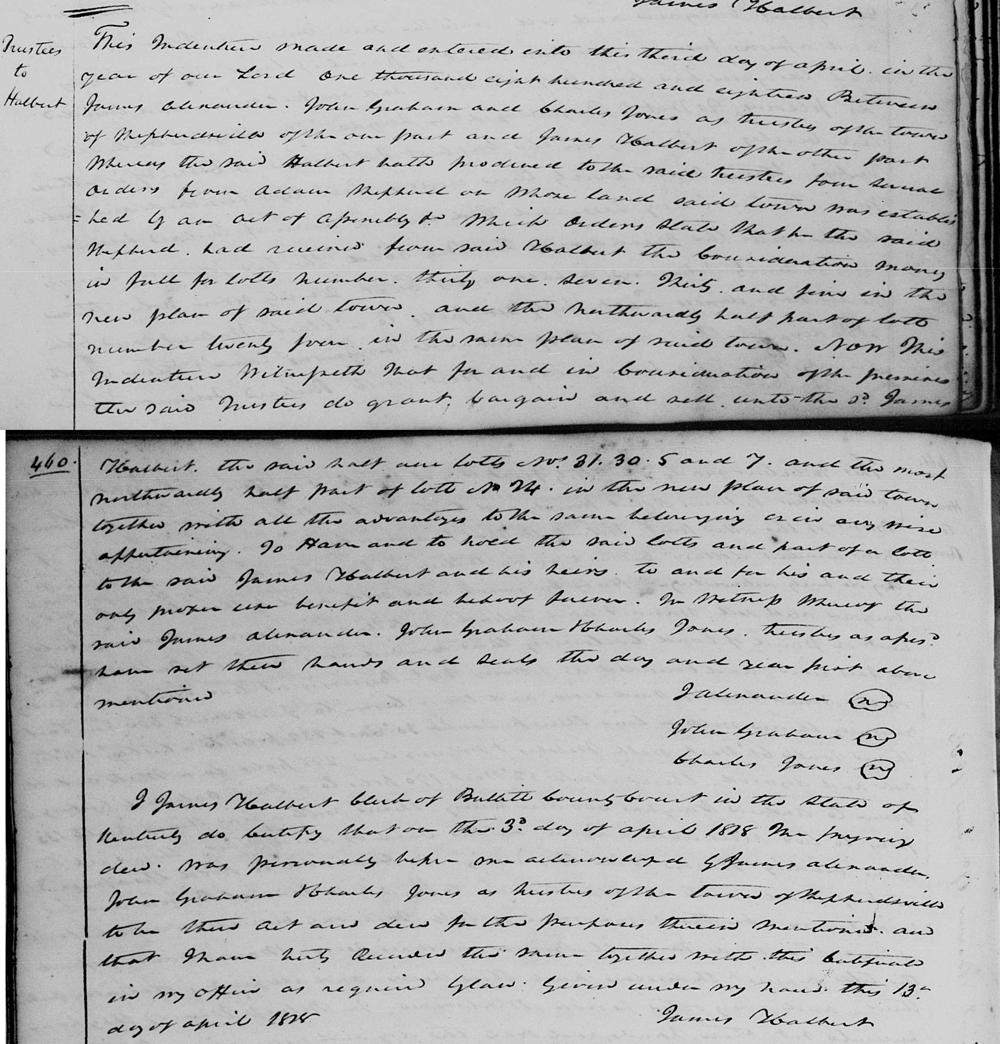 James Halbert
Trustees
to
Halbert
This Indenture made and entered into this third day of april in the
year of our Lord One thousand eight hundred and eighteen Between
James Alexander. John Graham and Charles Jones as trustees of the town
of Shepherdsville of the one part and James Halbert of the other part
Whereas the said Halbert hath produced to the said trustees four several
orders from Adam Shepherd on whose land said town was establis
=hed by an act of assembly &. Which orders state that he the said
Shepherd. had received from said Halbert the Consideration money
in full for lotts number. thirty one. seven. Thirty. and five in the
new plan of said town. and the northwardly half part of lott
number twenty four in the same plan of said town. Now This
Indenture Witnesseth that for and in Consideration of the premises
the said Trustees do grant, bargain and sell unto the sd. James
460.
Halbert. the said half acre lotts Nos. 31. 30. 5 and 7. and the most
northwardly half part of lott No 24. in the new plan of said town
together with all the advantages to the same belonging or in any wise
appertaining. To Have and to hold the said lotts and part of a lott
to the said James Halbert and his heirs. to and for his and their
only proper use benefit and behoof forever. In Witness Whereof the
said James Alexander. John Graham & Charles Jones. trustees as afesd.
have set their hands and seals the day and year first above
mentioned
J Alexander
John Graham
Charles Jones
I James Halbert Clerk of Bullitt County Court in the State of
Kentucky do Certify that on the 3d. day of april 1818 The foregoing
deed. was personally before me acknowledged by James Alexander,
John Graham & Charles Jones as trustees of the town of Shepherdsville
to be their act and deed for the purposes therein mentioned. and
that I have truly Recorded the same together with this Certificate
in my office as required by law. Given under my hand this 13th
day of april 1818
James Halbert